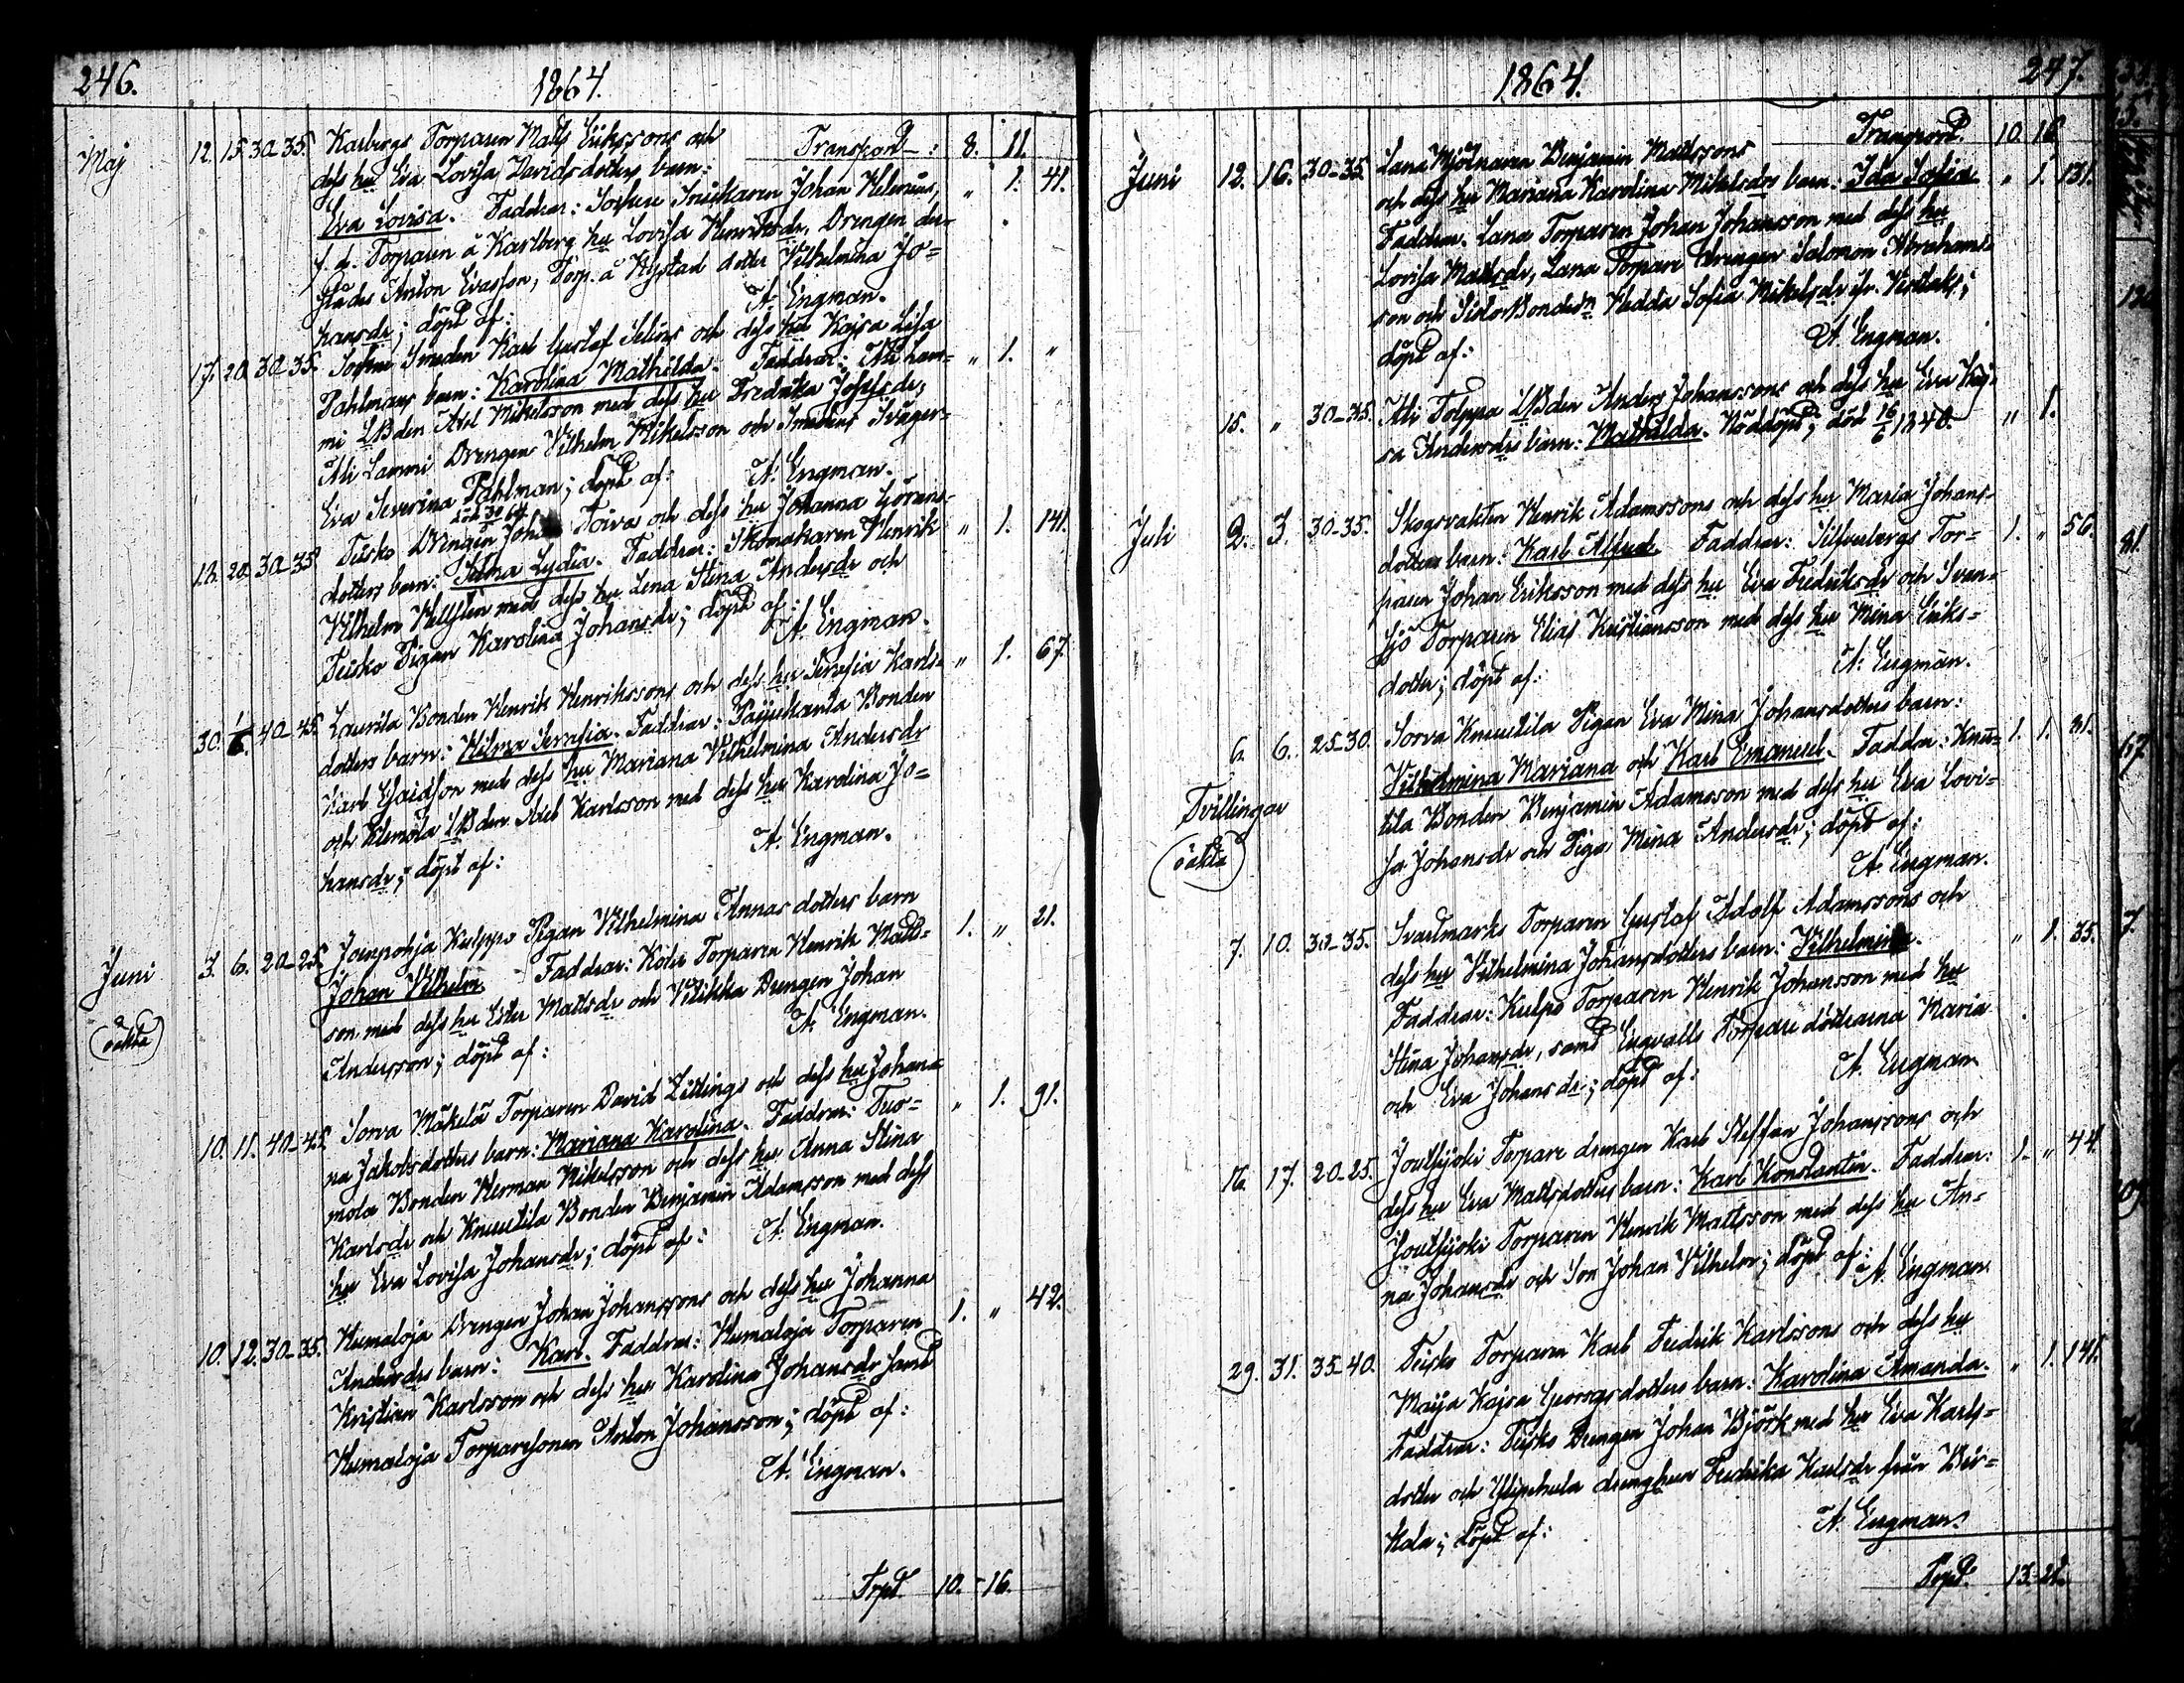 246.
1864.
Maj
12. 15. 30-35. Karbergs Torparen Matts Erikssons och Transport: 8. 11.
dess hu Eva Lovisa Davidsdotters barn: " 1. 41.
Eva Lovisa. Faddrar: Johan Helenius,
f. d. Torparen å Karlberg hu Lovisa Henriksdr, Drengen der-
städes Anton Evasson, Torp. å Nystad dotter Vilhelmina Jo=
hansdr; döpt af: A. Engman.
17. 20. 30-35. Smeden Karl Gustaf och dess hu Kajsa Lisa
Pahlmans barn: Karolina Mathilda. Faddrar: Ali Lam- " 1. "
mi LBden Axel Mikelsson med dess hu Fredrika Josefsdr,
Ali Lammi Drengen Vilhelm Mikelsson och Smedens Svåger-
Eva Severina Pahlman; döpt af: A. Engman.
12. 20. 30-35. Teisko Drengen Johan Toiva och dess hu Johanna Görans-
dotters barn: Selma Lydia. Faddrar: Skomakaren Henrik " 1. 141.
Vilhelm Hellsten med dess hu Lena Stina Andersdr och
Teisko Pigan Karolina Johansdr; döpt af: A. Engman.
30. 1/6. 40-45. Laurila Bonden Henrik Henrikssons och dess hu Serafia Karls- " 1. 67.
dotters barn: Hilma Serafia. Faddrar: Bonden
Karl Esaiasson med dess hu Mariana Vilhelmina Andersdr
och Klemola LBden Axel Karlsson med dess hu Karolina Jo=
hansdr; döpt af: A. Engman.
Juni
3. 6. 20-25. Joenpohja Kulppo Pigan Vilhelmina Annas dotters barn 1. " 21.
Johan Vilhelm. Faddrar: Torparen Henrik Matts-
(oäkta)
son med dess hu Ester Mattsdr och Drengen Johan
Andersson; döpt af: A. Engman.
10. 11. 40-45. Sorva Mäkelä Torparen David Zittings och dess hu Johan=
na Jakobsdotters barn: Mariana Karolina. Faddrar: Tuo= " 1. 91.
mola Bonden Herman Mikelsson och dess hu Anna Stina
Karlsdr och Knuutila Bonden Benjamin Adamsson med dess
hu Eva Lovisa Johansdr; döpt af: A. Engman.
10. 12. 30-35. Humaloja Drengen Johan Johanssons och dess hu Johanna
Andersdrs barn: Karl. Faddrar: Humaloja Torparen 1. " 42.
Kristian Karlsson och dess hu Karolina Johansdr samt
Humaloja Torparsonen Anton Johansson; döpt af:
A. Engman.
Trpt. 10. - 16.
1864.
247.
Transport. 10. 16
Juni 12. 16. 30-35. Lana Mjölnaren Benjamin Mattssons
och dess hu Mariana Karolina Mikelsdrs barn: Ida Sofia. " 1. 131.
Faddrar: Lana Torparen Johan Johansson med dess hu
Lovisa Mattsdr, Lana Torpare Drengen Salomon Abrahams-
son och Hedda Sofia Mikelsdr
döpt af: A. Engman.
15. " 30-35. Ali Tolppa LBden Anders Johanssons och dess hu Eva Kaj-
sa Andersdrs barn: Mathilda. Nöddöpt; död 16/6 " 1.
Juli 2. 3. 30-35. Skogsvakten Henrik Adamssons och dess hu Maria Johans-
dotters barn: Karl Alfred. Faddrar: Silfverbergs Tor= 1. " 56.
paren Johan Eriksson med dess hu Eva Fredriksdr och Svan-
sjö Torparen Elias Kristiansson med dess hu Mina Eriks-
dotter; döpt af: A. Engman.
6. 6. 25-30. Sorva Knuutila Pigan Eva Mina Johansdotters barn:
Vilhelmina Mariana och Karl Emanuel. Faddrar: Knu= 1. 1. 81.
Tvillingar
tila Bonden Benjamin Adamsson med dess hu Eva Lovi-
(oäkta)
sa Johansdr och Piga Mina Andersdr; döpt af:
A. Engman.
7. 10. 30-35. Svartmarks Torparen Gustaf Adolf Adamssons och
dess hu Vilhelmina Johansdotters barn: Vilhelmina. " 1. 35.
Faddrar: Kulpo Torparen Henrik Johansson med hu
Stina Johansdr, samt Engvalls Torpare döttrarna Maria
och Eva Johansdr; döpt af: A. Engman
16. 17. 20-25. Joutsijoki Torpare drengen Karl Steffan Johanssons och
dess hu Eva Mattsdotters barn: Karl Konstantin. Faddrar: 1. " 44.
Joutsijoki Torparen Henrik Mattsson med dess hu An-
na Johansdr och Son Johan Vilhelm; döpt af: A. Engman.
29. 31. 35-40. Teisko Torparen Karl Fredrik Karlssons och dess hu
Maija Kajsa Georgsdotters barn: Karolina Amanda. " 1. 141.
Faddrar: Teisko Drengen Johan Björk med hu Eva Karls=
dotter och drenghun Fredrika Karlsdr från Bir=
kala; döpt af: A. Engman.
Trpt. 13. 21.